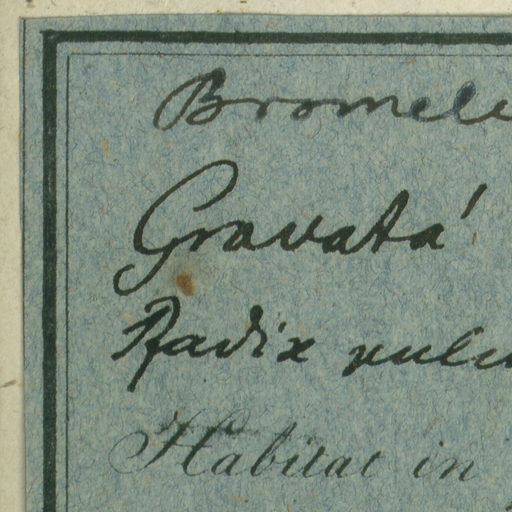 Bromele
Gravatá
Radix vuln
Habitat in